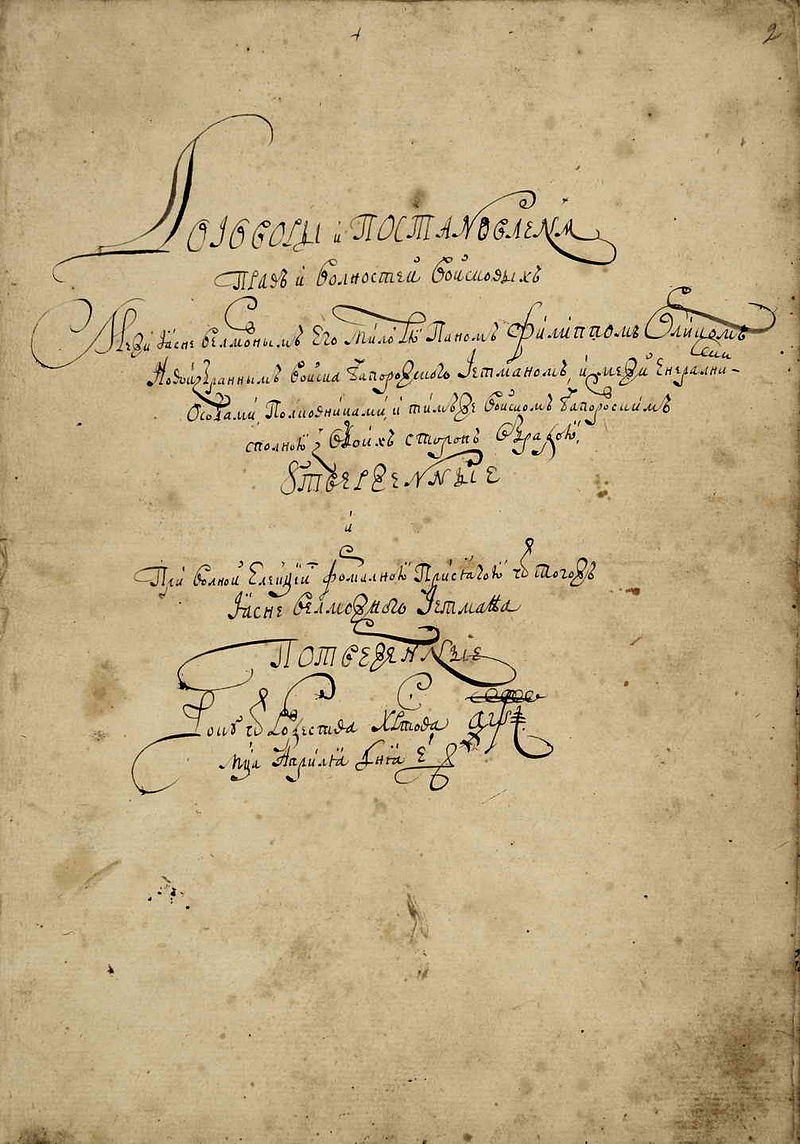 2
Договоры и Постановленя
Правъ и волностей войсковыхъ
Межи Ясне велможнымъ Его Паномъ Филиппомъ Орликомъ
Новоизбраннымъ войска Запорожского Гетманомъ, и межи Енерални-
Особами Полковниками и тимъже войскомъ Запорозскимъ
сполною з обоихъ сторонъ обрадою
Утверженные
и
При волной Елекции формалною Присягою ѿ тогожъ
Ясне велможного Гетмана
Потверженные
Року ѿ Рожества Христова ҂аѱі
Мця Априля дня е